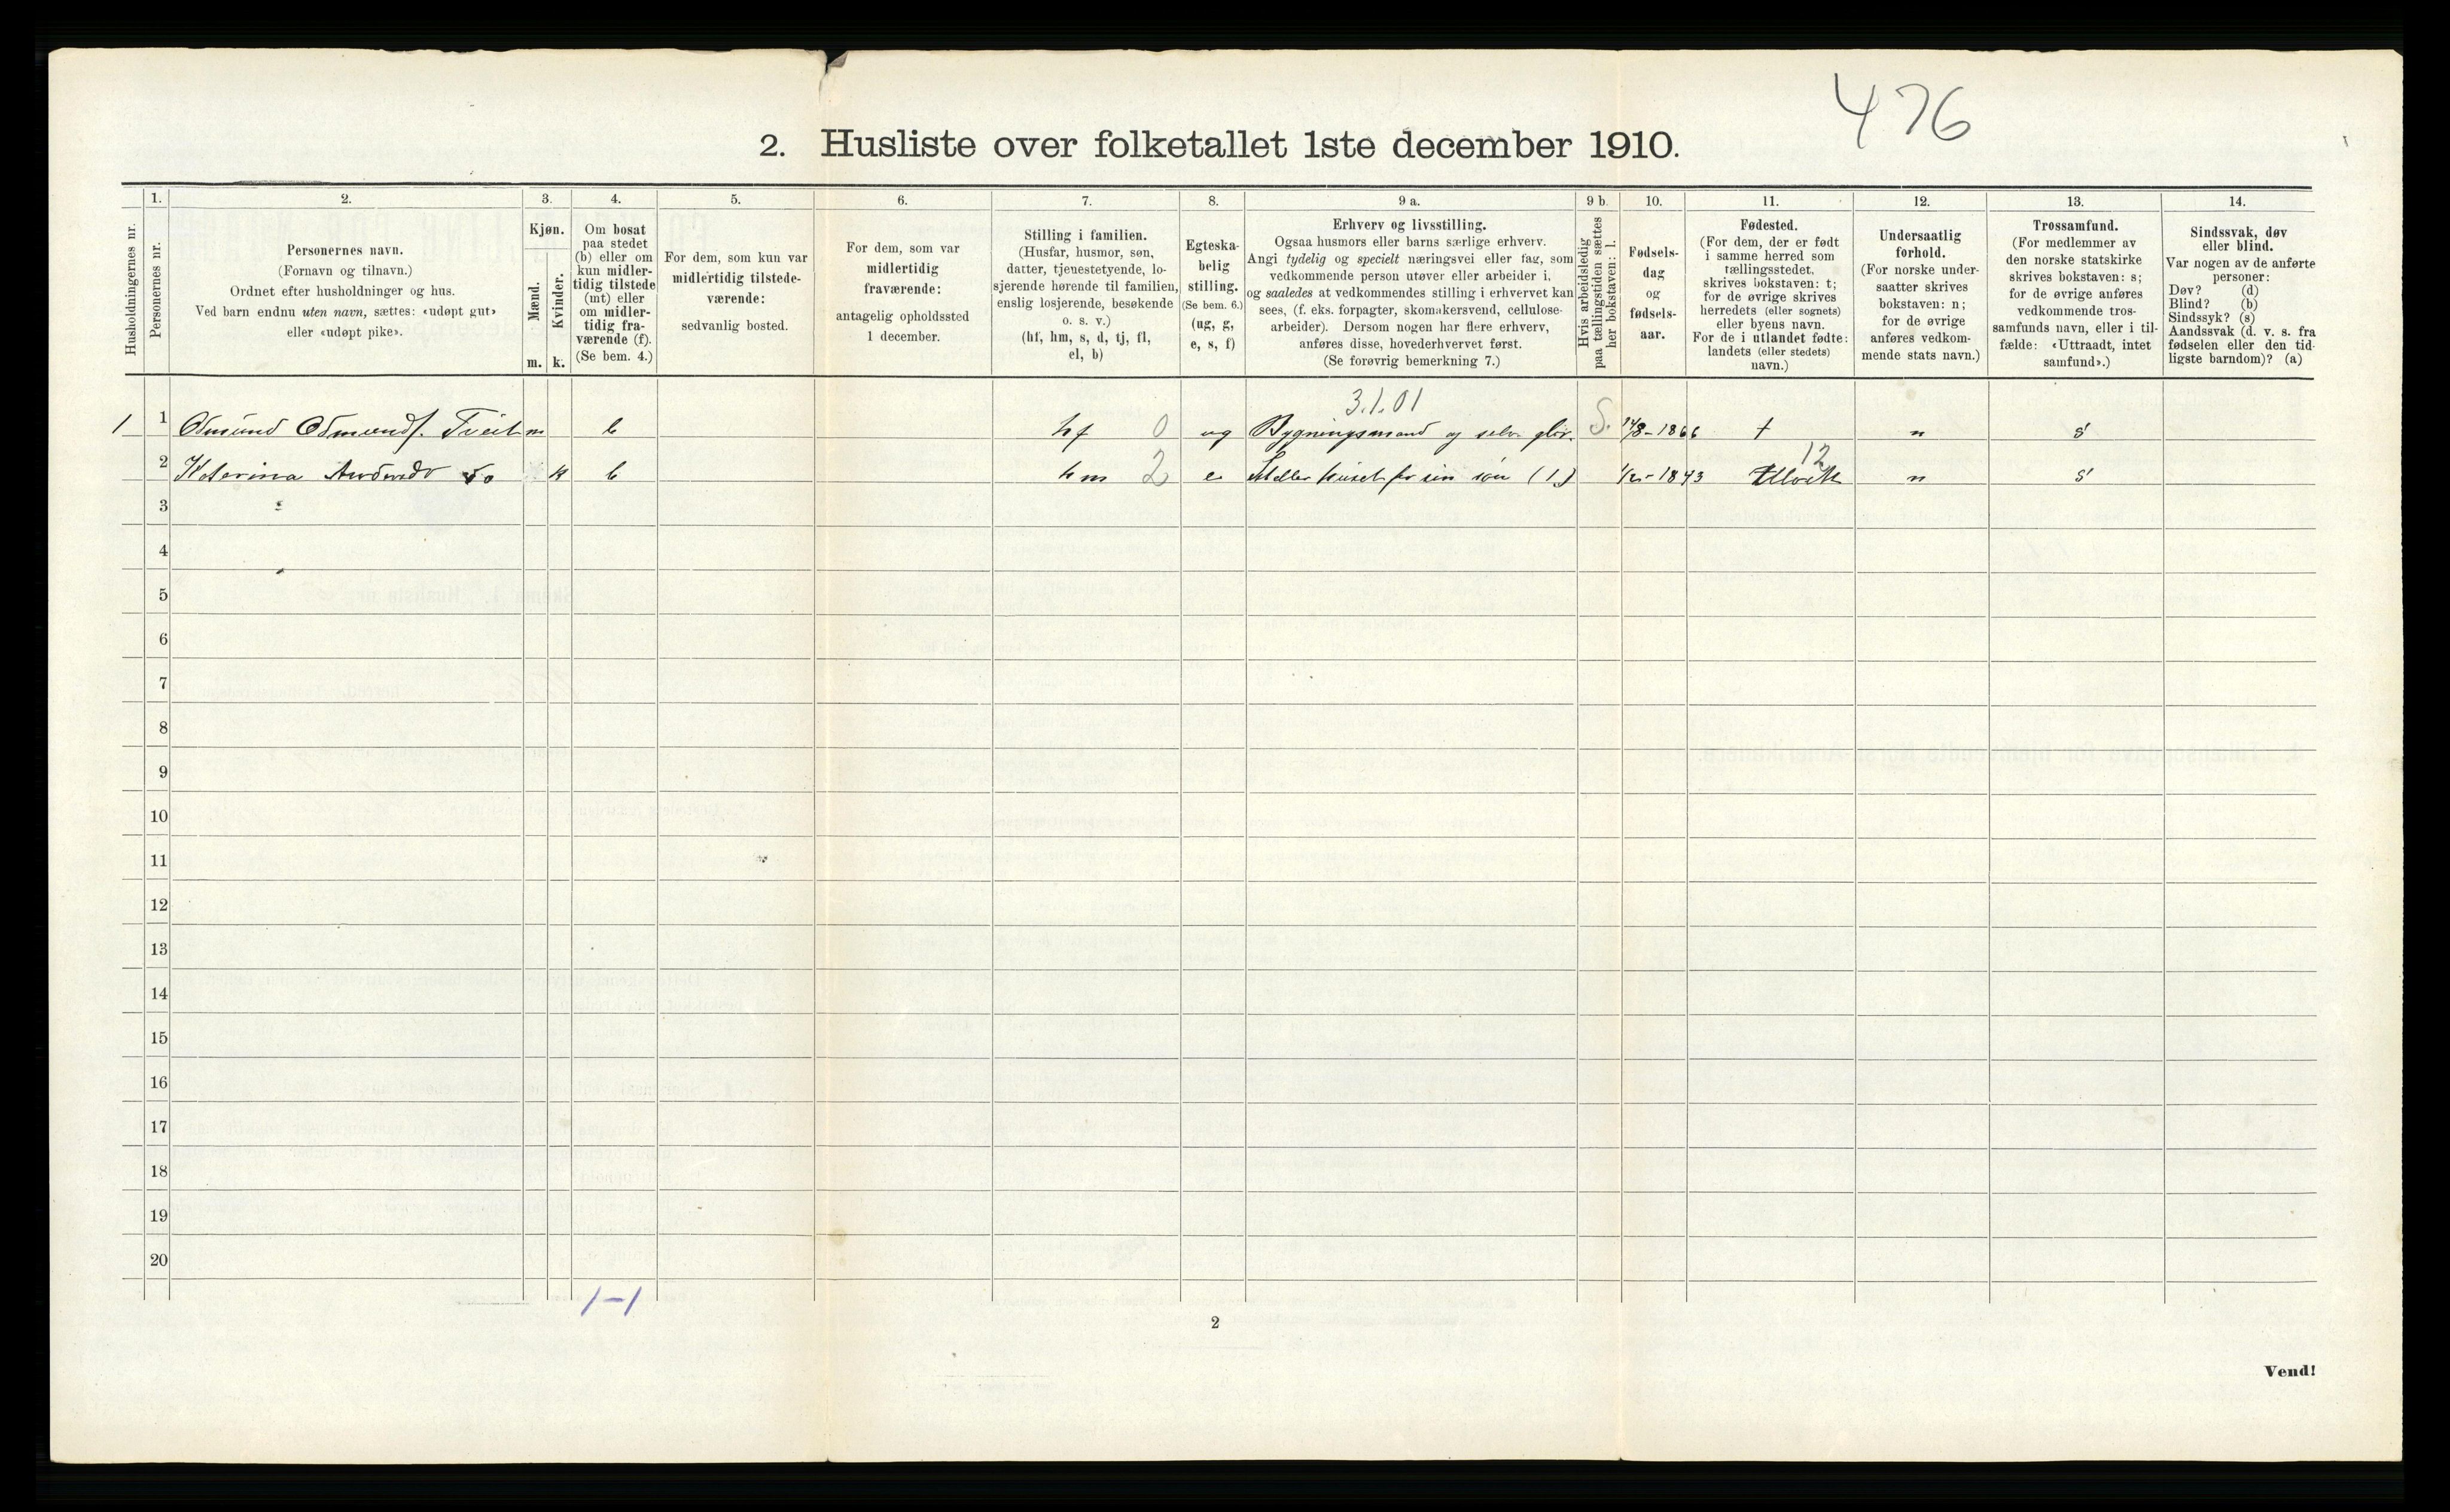 476
2. Husliste over folketallet 1ste december 1910.
Husholdningernes nr.
1.
Personernes nr.
2.
Personernes navn.
(Fornavn og tilnavn.)
Ordnet efter husholdninger og hus.
Ved barn endnu uten navn, sættes: «udøpt gut»
eller «udøpt pike».
3.
Kjøn.
Mænd.
m.
Kvinder.
k.
4.
Om bosat
paa stedet
(b) eller om
kun midler-
tidig tilstede
(mt) eller
om midler-
tidig fra-
værende (f).
(Se bem. 4.)
5.
For dem, som kun var
midlertidig tilstede-
værende:
sedvanlig bosted.
6.
For dem, som var
midlertidig
fraværende:
antagelig opholdssted
1 december.
7.
Stilling i familien.
(Husfar, husmor, søn,
datter, tjenestetyende, lo-
sjerende hørende til familien,
enslig losjerende, besøkende
o. s. v.)
(hf, hm, s, d, tj, fl,
el, b)
8.
Egteska-
belig
stilling.
(Se bem. 6.)
(ug, g,
e, s, f)
9 a.
Erhverv og livsstilling.
Ogsaa husmors eller barns særlige erhverv.
Angi tydelig og specielt næringsvei eller fag, som
vedkommende person utøver eller arbeider i,
og saaledes at vedkommendes stilling i erhvervet kan
sees, (f. eks. forpagter, skomakersvend, cellulose-
arbeider). Dersom nogen har flere erhverv,
anføres disse, hovederhvervet først.
(Se forøvrig bemerkning 7.)
9 b.
Hvis arbeidsledig
paa tællingstiden sættes
her bokstaven: l.
10.
Fødsels-
dag
og
fødsels-
aar.
11.
Fødested.
(For dem, der er født
i samme herred som
tællingsstedet,
skrives bokstaven: t;
for de øvrige skrives
herredets (eller sognets)
eller byens navn.
For de i utlandet fødte:
landets (eller stedets)
navn.)
12.
Undersaatlig
forhold.
(For norske under-
saatter skrives
bokstaven: n;
for de øvrige
anføres vedkom-
mende stats navn.)
13.
Trossamfund.
(For medlemmer av
den norske statskirke
skrives bokstaven: s;
for de øvrige anføres
vedkommende tros-
samfunds navn, eller i til-
fælde: «Uttraadt, intet
samfund».)
14.
Sindssvak, døv
eller blind.
Var nogen av de anførte
personer:
Døv? (d)
Blind? (b)
Sindssyk? (s)
Aandssvak (d. v. s. fra
fødselen eller den tid-
ligste barndom)? (a)
3.1.01
1 1 Odmund Odmunds. Tveit m b hf 0 ug Bygningsmand og selv. S. -1866 t n s
12
2 Katerina do k b hm 2 e Steller huset for sin søn (1) -1843 n s
3
4
5
6
7
8
9
10
11
12
13
14
15
16
17
18
19
20
1-1
2
Vend!